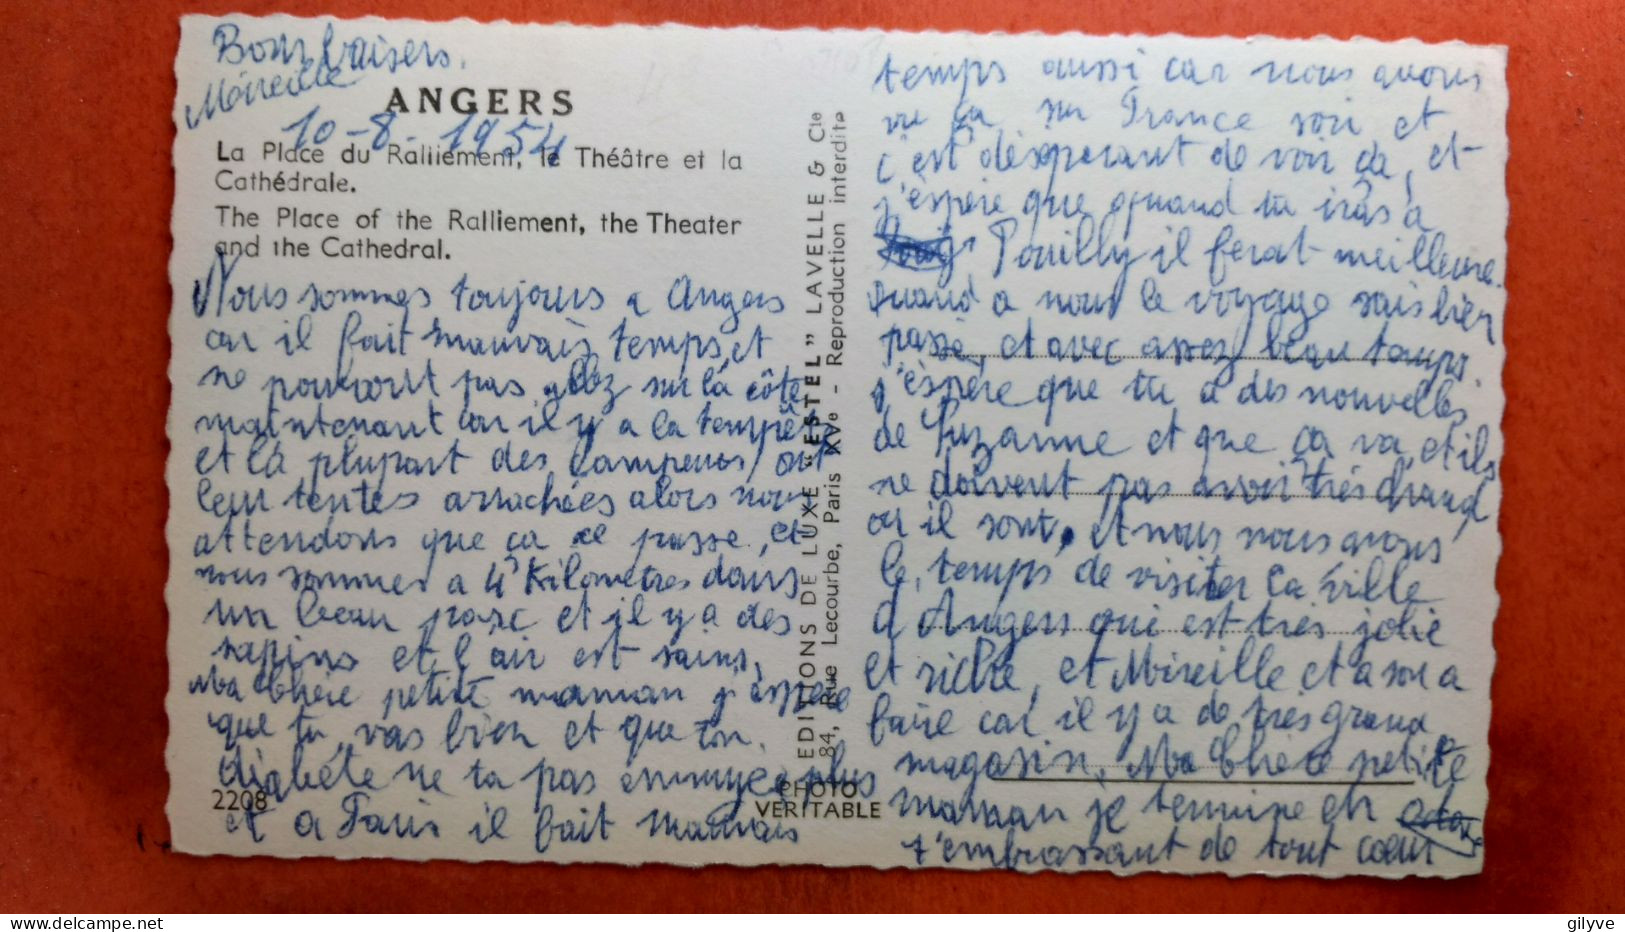 Bons baisers.
Mireille
ANGERS
10-8-1954
La Place du Ralliement, le Théâtre et la
Cathédrale.
The Place of the Ralliement, the Theater
and the Cathedral.
Nous sommes toujours a Angers
car il fait mauvais temps, et
ne pouvont pas allez sur la côte
maintenant car il y a la tempête
et la plupart des campeurs ont
leur tentes arrachées alors nous
attendons que ça se passe, et
nous sommes a 4 Kilometres dans
un beau parc et il y a des
sapins et l'air est sains.
Ma Chère petite maman j'espère
que tu vas bien et que ton
diabéte ne ta pas ennuyée plus
et a Paris il fait mauvais
2208
EDITIONS DE LUXE "ESTEL" LAVELLE & Cie
84, Rue Lecourbe, Paris XVe - Reproduction interdite
PHOTO
VERITABLE
temps aussi car nous avons
vu ça sur France soir et
c'est désesperant de voir ça, et
j'espère que quand tu iras a
Pouilly il ferat meilleure.
Quand a nous le voyage sais bien
passé, et avec assez beau temps.
j'espère que tu a des nouvelles
de Suzanne et que ça va, et ils
ne doivent pas avoir très chaud
ou il sont, et nous nous avons
le temps de visiter la ville
d'Angers qui est très jolie
et riche, et Mireille et a son a
faire car il y a de très grand
magasin. Ma Chère petite
maman je termine en
t'embrassant de tout coeur
gilyve